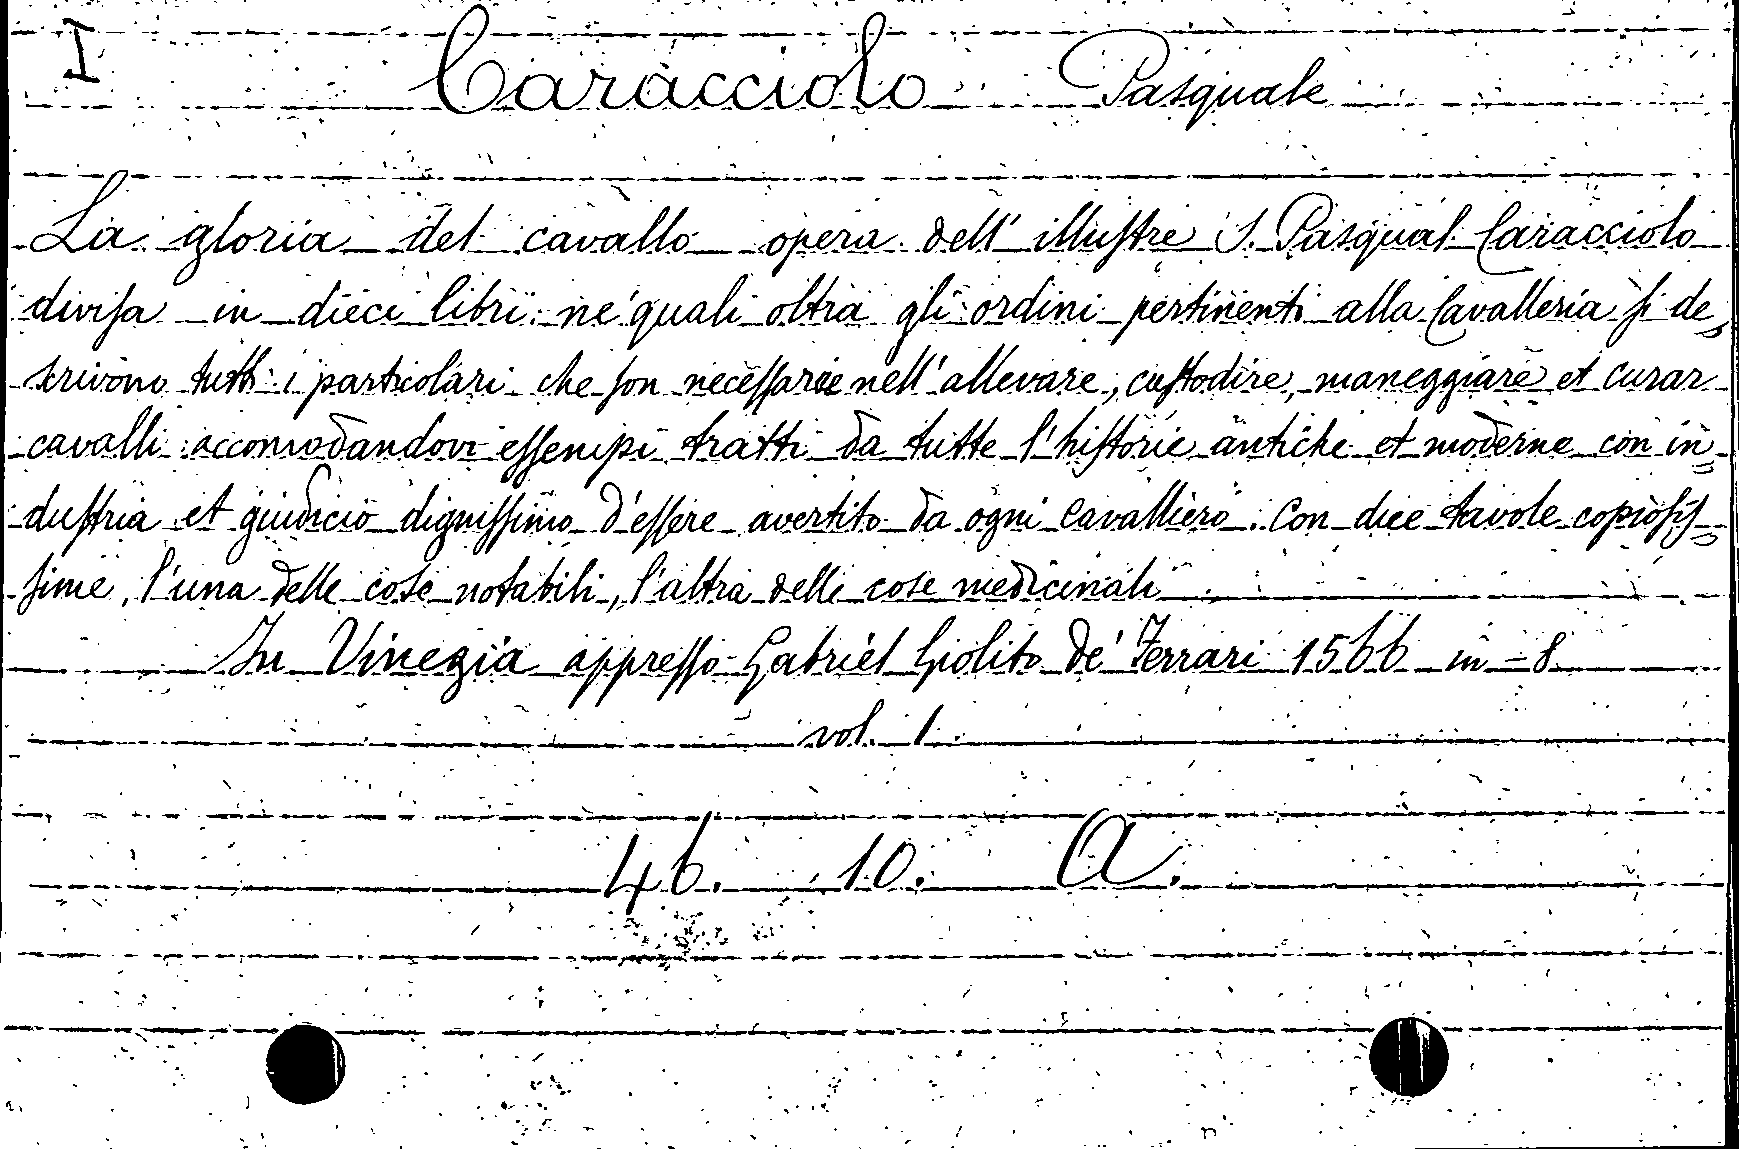 I Caracciolo Pasquale
La gloria del cavallo opera dell' illuſtre S. Pasqual Caracciolo
diviſa in dieci libri ne' quali oltra gli ordini pertinenti alla Cavalleria ſi de,
scrivono tutti i particolari che ſon neceſſarie nell' allevare, cuſtodire, maneggiare et curar
cavalli accomodandovi eſſempi tratti da tutte l'hiſtorie antiche et moderne con in=
duſtria et giudicio digniſſimo d'eſſere avertito da ogni Cavalliero. Con due tavole copioſiſ=
ſime, l'una delle cose notabili, l'altra delle cose medicinali
In Vinegia appreſſo Gabriel Giolito de' Ferrari 1566 in-8
vol. 1.
46. 10. A.